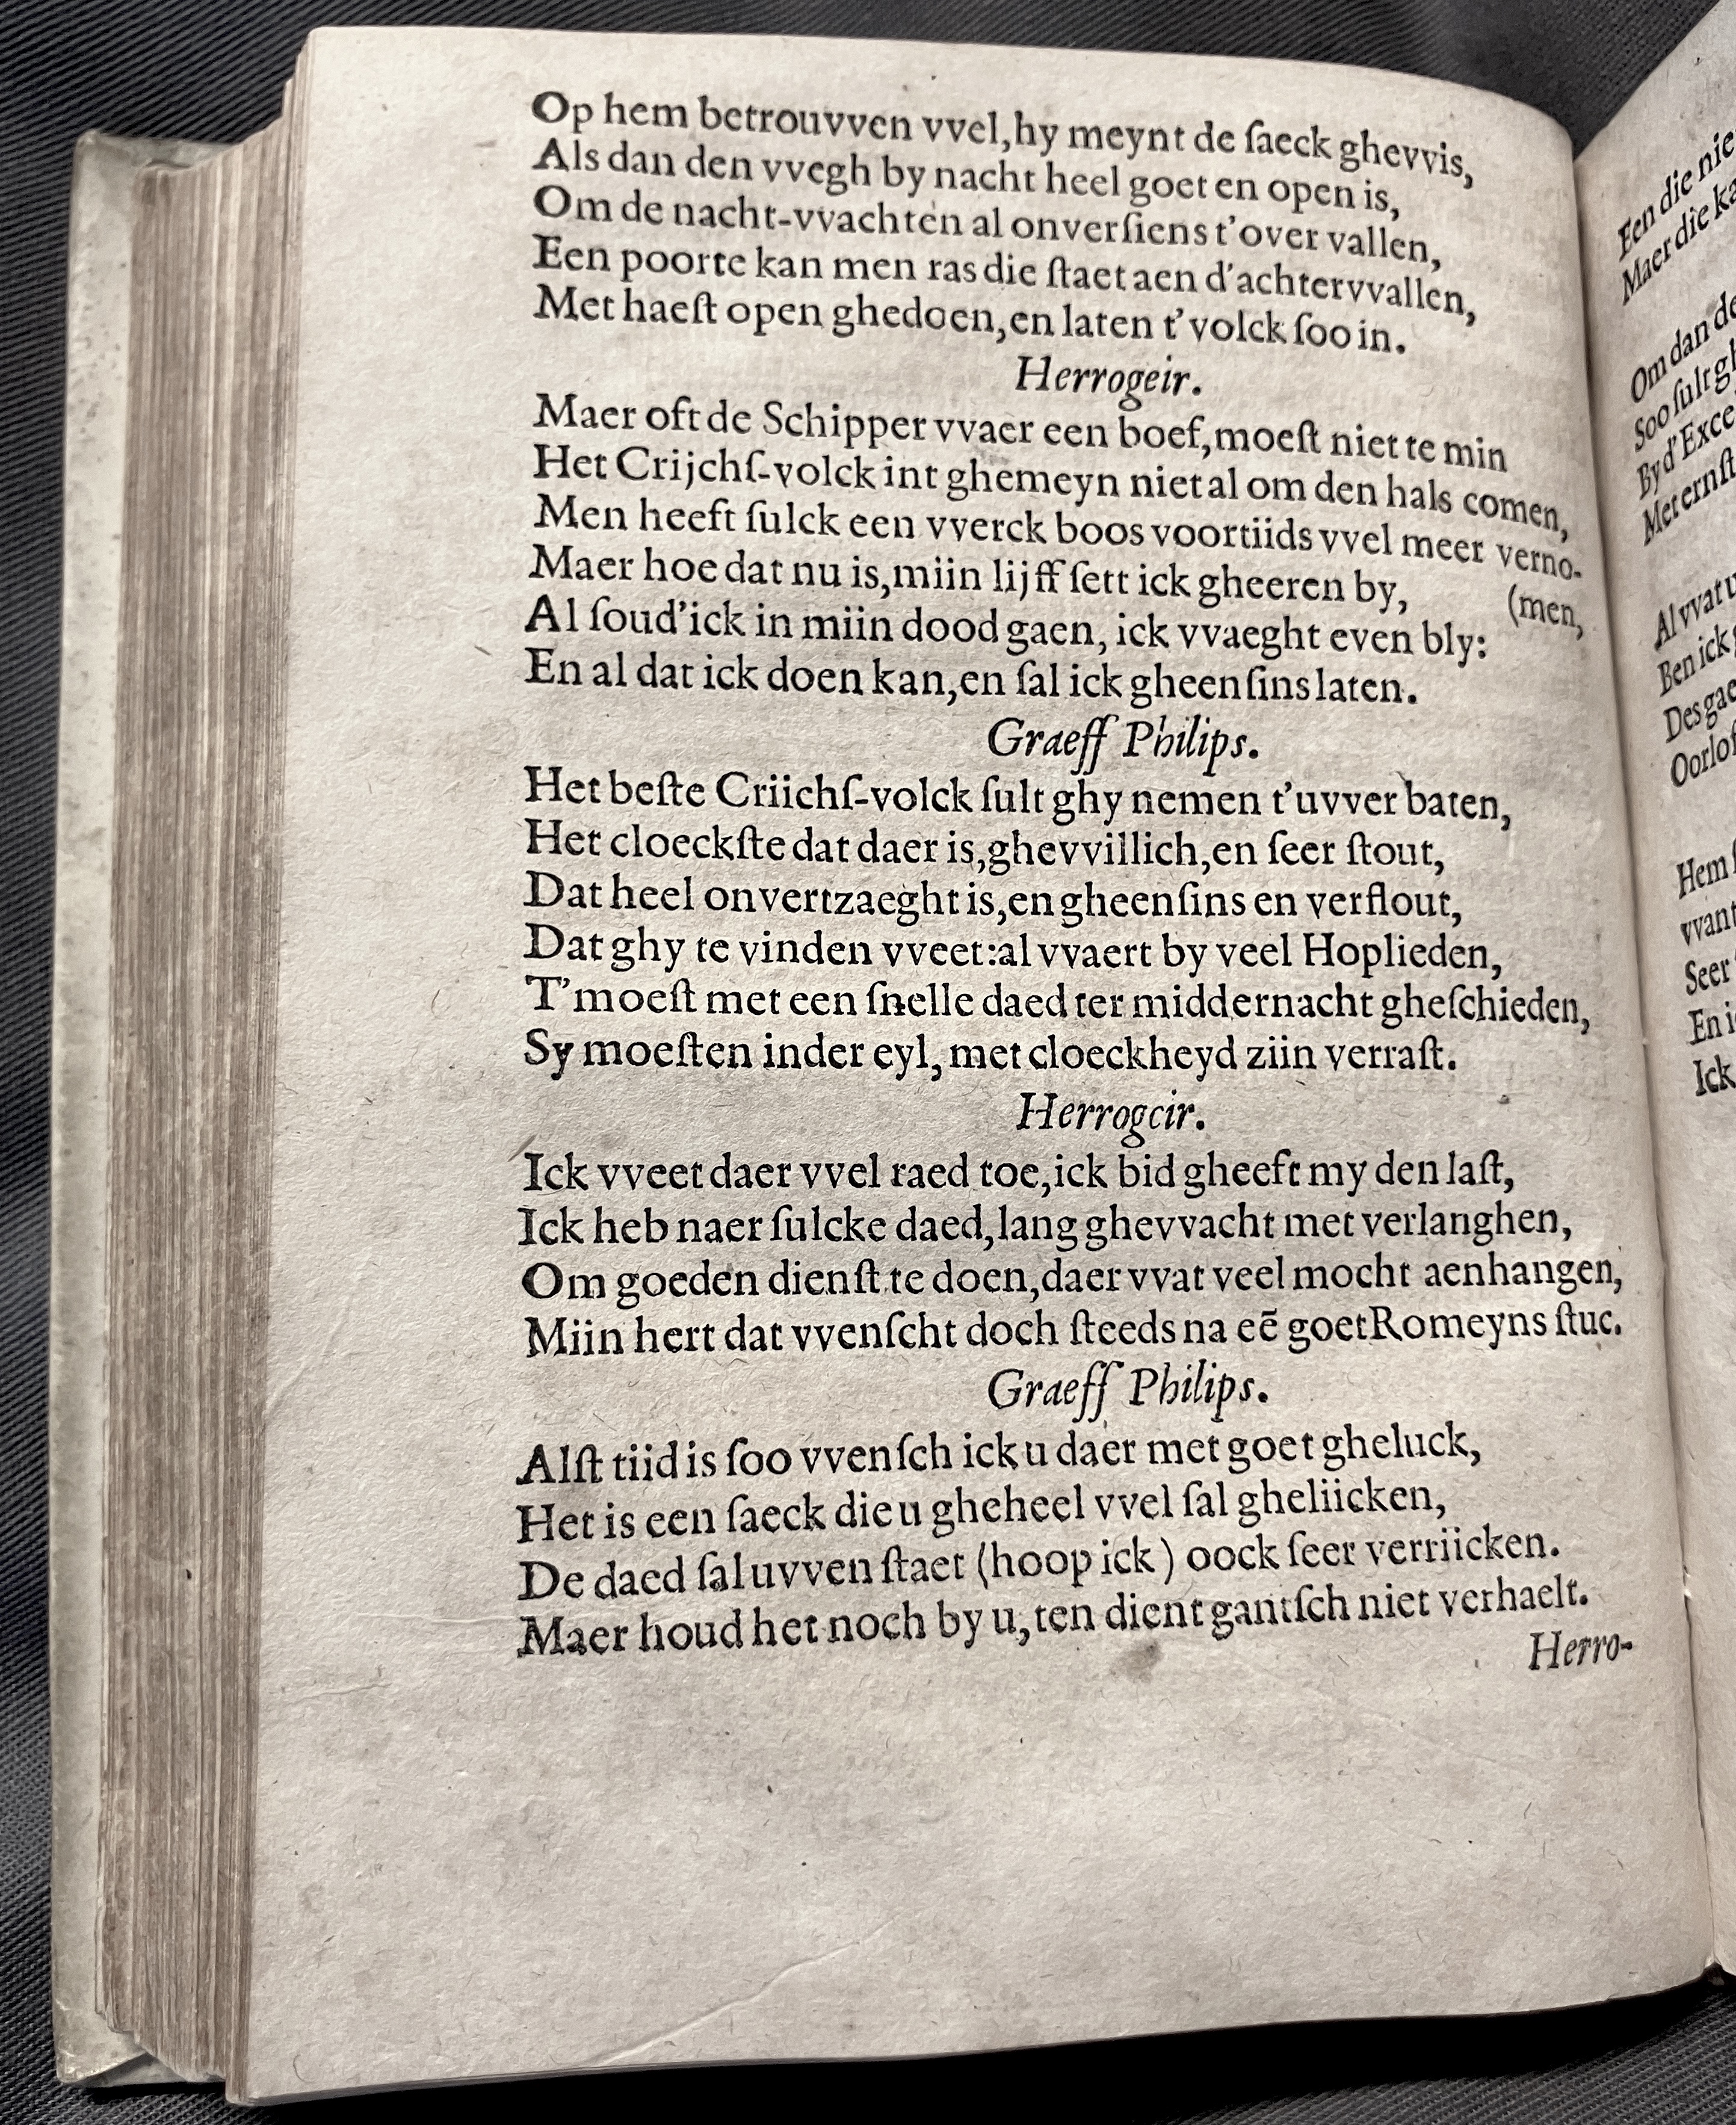 Op hem betrouvven vvel,hy meynt de ſaeck ghevvis,
Als dan den vvegh by nacht heel goet en open is,
Om de nacht-vvachten al onverſiens t'over vallen,
Een poorte kan men ras die ſtaet aen d'achtervvallen,
Met haeſt open ghedoen,en laten t'volck ſoo in.
Herrogeir.
Maer oft de Schipper vvaer een boef,moeſt niet te min
Het Crijchſ-volck int ghemeyn niet al om den hals comen,
Men heeft ſulck een vverck boos voortiids vvel meer verno-
(men,
Maer hoe dat nu is,miin lijff ſett ick gheeren by,
Al ſoud'ick in miin dood gaen, ick vvaeght even bly:
En al dat ick doen kan,en ſal ick gheenſins laten.
Graeff Philips.
Het beſte Criichſ-volck ſult ghy nemen t'uvver baten,
Het cloeckſte dat daer is,ghevvillich,en ſeer ſtout,
Dat heel onvertzaeght is,en gheenſins en verflout,
Dat ghy te vinden vveet:al vvaert by veel Hoplieden,
T'moeſt met een ſnelle daed ter middernacht gheſchieden,
Sy moeſten inder eyl, met cloeckheyd ziin verraſt.
Herrogeir.
Ick vveet daer vvel raed toe,ick bid gheeft my den laſt,
Ick heb naer ſulcke daed,lang ghevvacht met verlanghen,
Om goeden dienſt te doen,daer vvat veel mocht aenhangen,
Miin hert dat vvenſcht doch ſteeds na eē goet Romeyns ſtuc.
Graeff Philips.
Alſt tiid is ſoo vvenſch ick u daer met goet gheluck,
Het is een ſaeck die u gheheel vvel ſal gheliicken,
De daed ſal uvven ſtaet (hoop ick) oock ſeer verriicken.
Maer houd het noch by u,ten dient gantſch niet verhaelt.
Herro-
Een die nie
Maer die ka
Om dan de
Soo ſult gh
By d'Exce
Met ernſt
Al vvat u
Ben ick g
Des gae
Oorlof
Hem ſ
vvant
Seer
En i
Ick